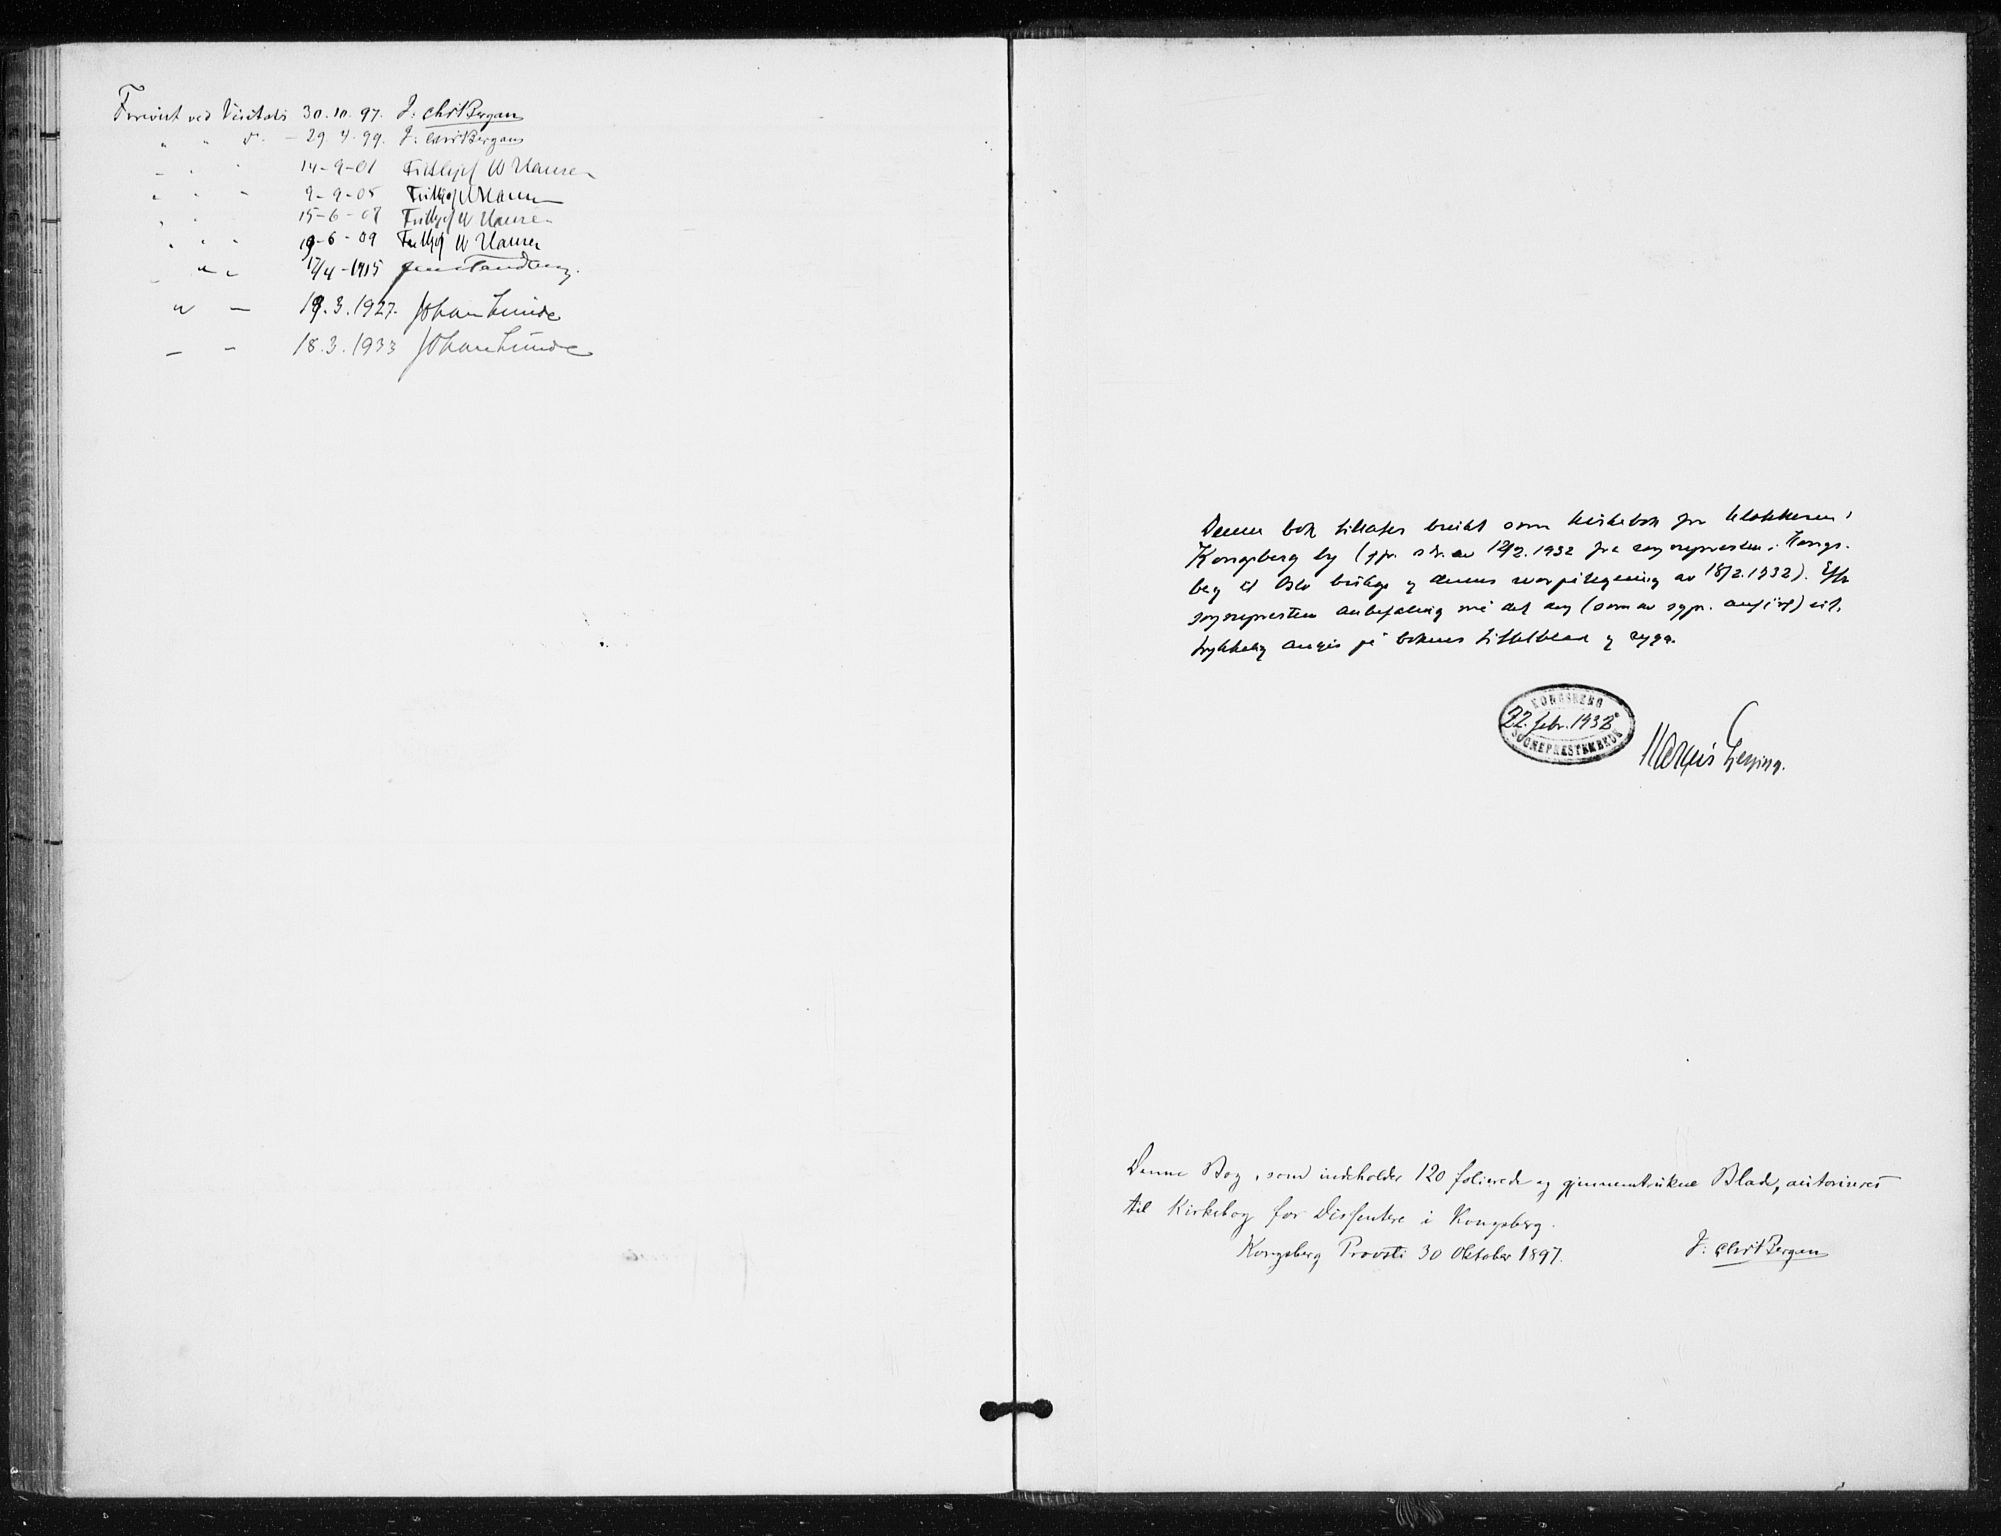 Forevist ved Visitats 30.10.97. J: Chr: Bergan
" " d. - 29.4.99. J: Chr: Bergan
- " " 14-9-01 Fridthjof W Hansen
" " - 9-9-05 Fridthjof W Hansen
" " 15-6-07 Fridthjof W Hansen
" " " 19-6-09 Fridthjof W Hansen
- " " 17/4-1915 Jens Tandberg.
" - 19.3.1927. Johan Lunde
- - 18.3.1933 Johan Lunde
Denne bok tillates brukt som kirkebok for klokkeren i
Kongsberg by (jfr. skr. av 12/2.1932 fra sognepresten i Kongs-
berg til Oslo biskop og dennes svarpåtegning av 18/2.1932). Efter
sogneprestens anbefaling må det dog (som av sgpr. anført) ut-
trykkelig angis på bokens tittelblad og rygg.
KONGSBERG
22. febr. 1932
SOGNEPRESTEMBEDE
Denne Bog, som indeholder 120 folierede og gjennemtrukne Blade, autoriseres
til Kirkebog for Dissentere i Kongsberg.
Kongsberg Provsti 30 Oktober 1897. J: Chr: Bergan